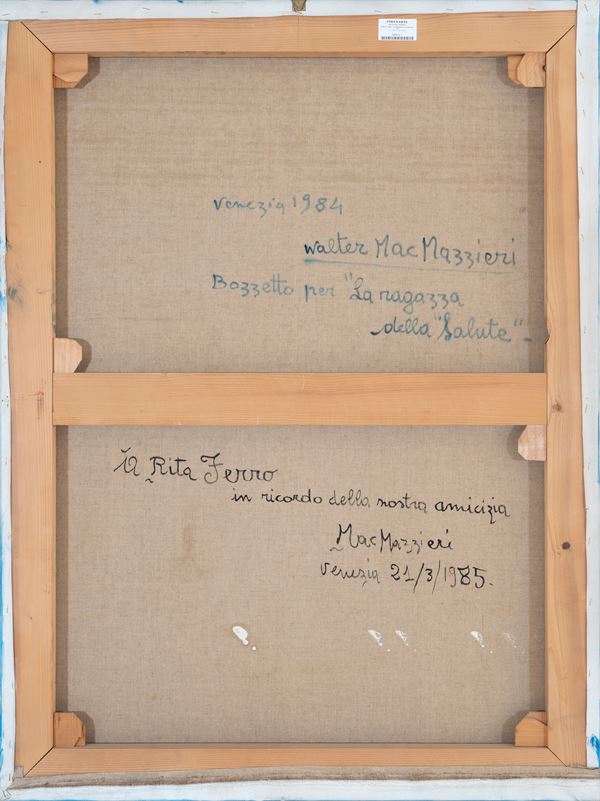 Venezia 1984
Walter Mac Mazzieri
Bozzetto per "La ragazza
della "Salute"-
A Rita Ferro
in ricordo della nostra amicizia
MacMazzieri
Venezia 21/3/1985.